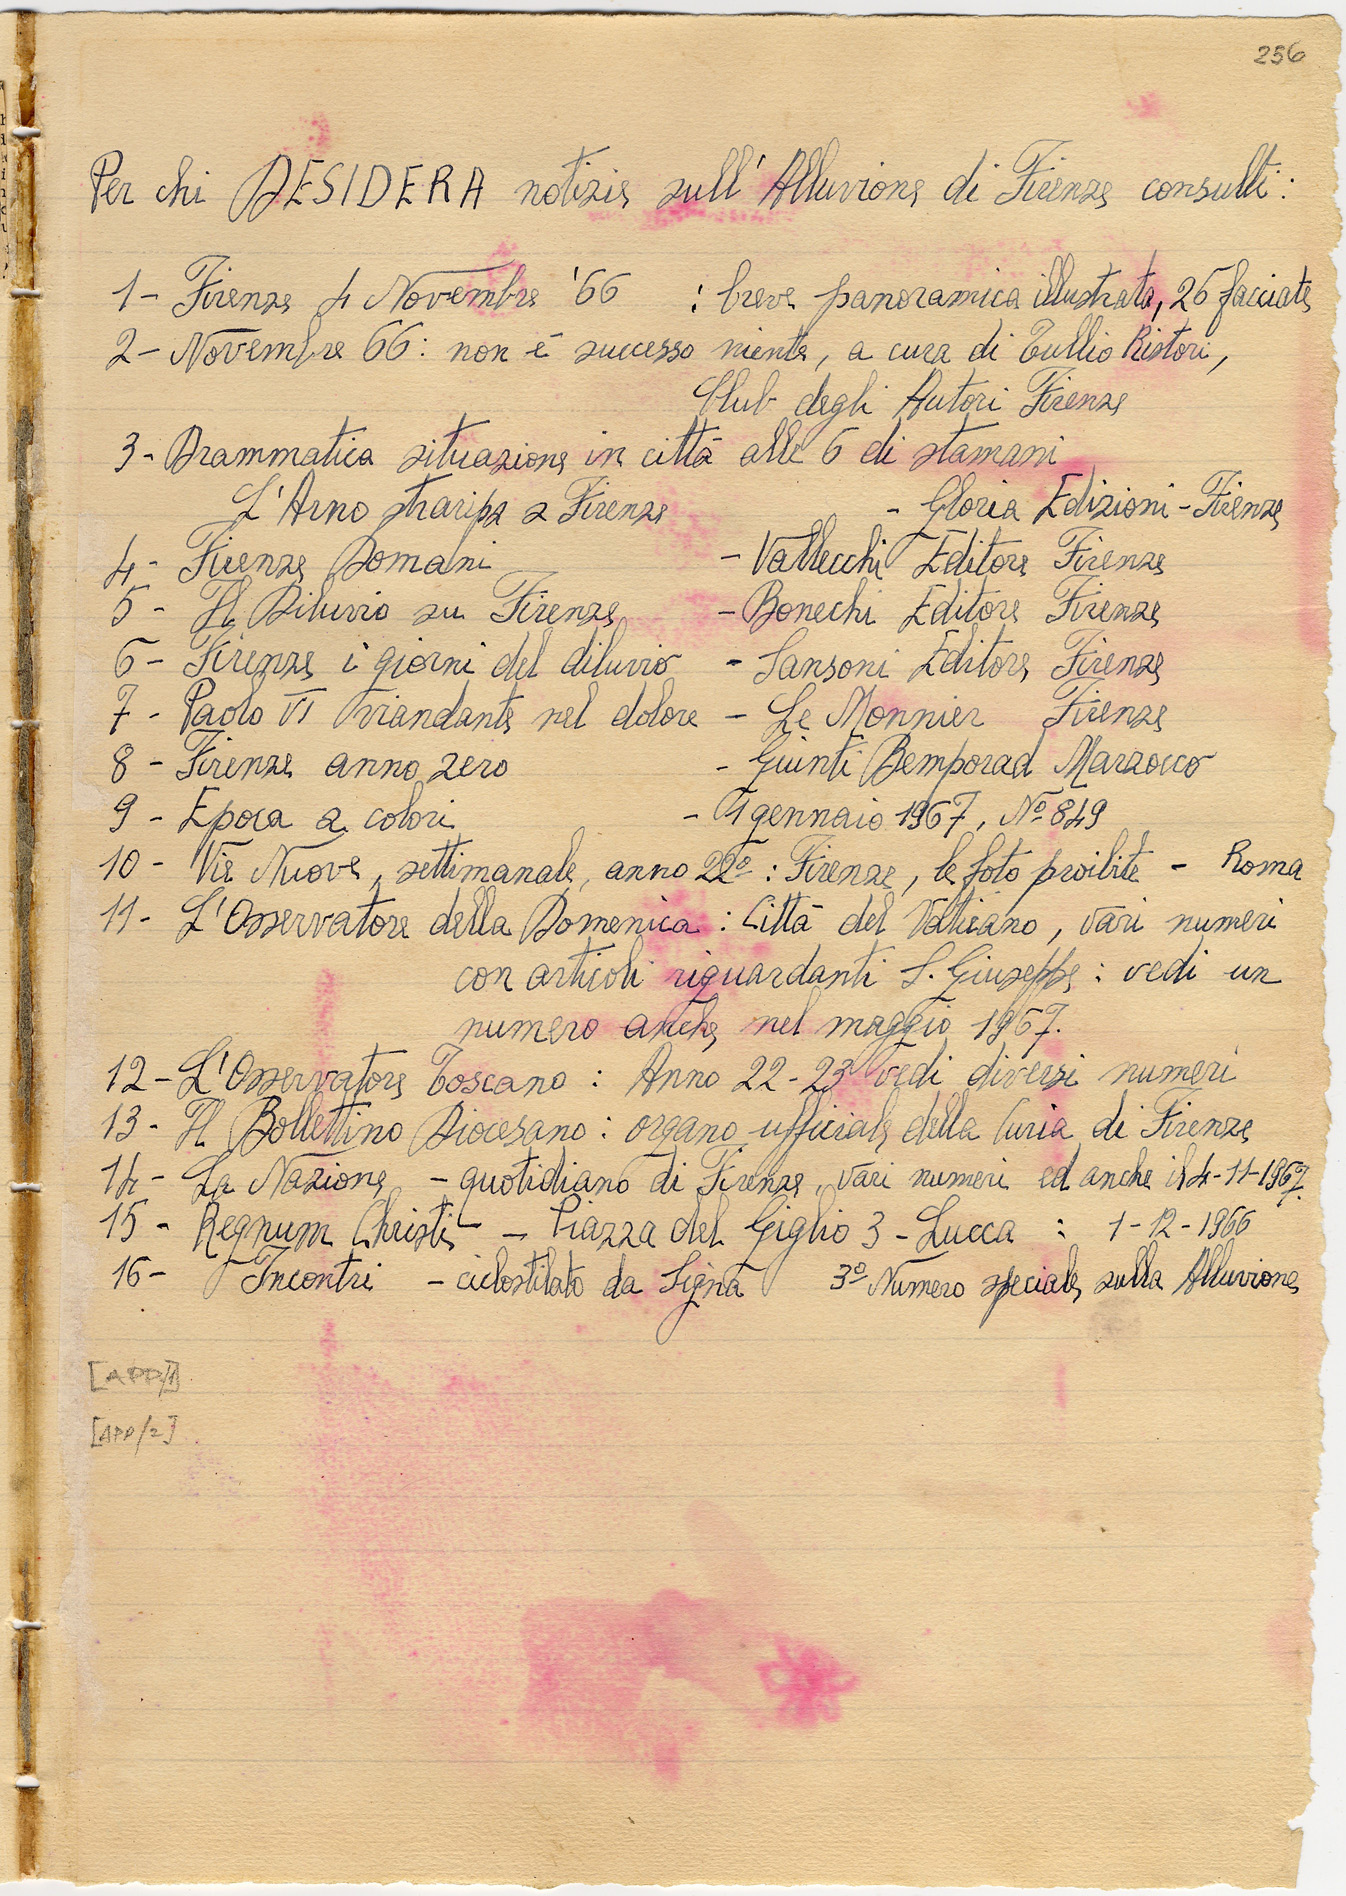 236
Per chi DESIDERA notizie sull'Alluvione di Firenze consulti:
1- Firenze 4 Novembre '66 : breve panoramica illustrata, 26 facciate
2- Novembre 66: non è successo niente, a cura di Tullio Ristori,
Club degli Autori Firenze
3- Drammatica situazione in città alle 6 di stamani
L'Arno straripa a Firenze - Gloria Edizioni - Firenze
4- Firenze Domani - Vallecchi Editore Firenze
5- Il Diluvio su Firenze - Bonechi Editore Firenze
6- Firenze i giorni del diluvio - Sansoni Editore Firenze
7- Paolo VI viandante nel dolore - Le Monnier Firenze
8- Firenze anno zero - Giunti Bemporad Marzocco
9- Epoca a colori - 1 gennaio 1967, Nº 849
10- Vie Nuove, settimanale, anno 22º: Firenze, le foto proibite - Roma
11- L'Osservatore della Domenica: Città del Vaticano, vari numeri
con articoli riguardanti S. Giuseppe: vedi un
numero anche nel maggio 1967.
12- L'Osservatore Toscano: Anno 22-23 vedi diversi numeri
13- Il Bollettino Diocesano: organo ufficiale della Curia di Firenze
14- La Nazione - quotidiano di Firenze, vari numeri ed anche il 4-11-1967.
15- Regnum Christi - Piazza del Giglio 3 - Lucca : 1-12-1966
16- Incontri - ciclostilato da Signa 3º Numero speciale sulla Alluvione
[APP/1]
[APP/2]